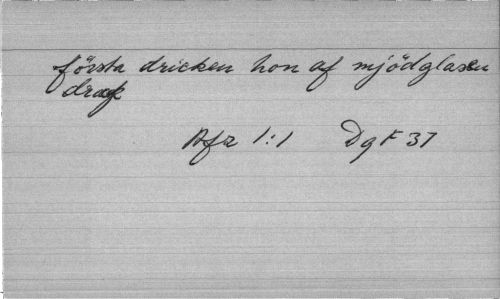 första dricken hon af mjödglasen
drack
Afz 1:1 DgF 37